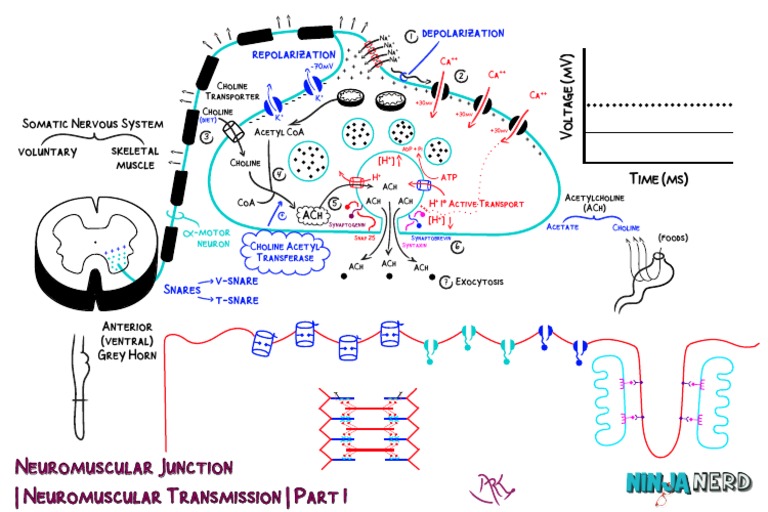 Na⁺
Na⁺
Na⁺
Na⁺
1 DEPOLARIZATION
REPOLARIZATION
-70MV
K⁺
K⁺
CA⁺⁺
2
CA⁺⁺
CA⁺⁺
+30MV
+30MV
+30MV
VOLTAGE (MV)
TIME (MS)
CHOLINE
TRANSPORTER
CHOLINE
(DIET)
3
SOMATIC NERVOUS SYSTEM
VOLUNTARY
SKELETAL
MUSCLE
ACETYL COA
CHOLINE
4
COA
ACH
5
[H⁺]↑
ADP + Pi
ATP
H⁺
H⁺
1° ACTIVE TRANSPORT
[H⁺]↓
ACH
ACH
ACH
SYNAPTOTAGMIN
SNAP 25
SYNAPTOBREVIN
SYNTAXIN
6
CHOLINE ACETYL
TRANSFERASE
α-MOTOR
NEURON
ACH
ACH
ACH
7 EXOCYTOSIS
ACETYLCHOLINE
(ACH)
ACETATE
CHOLINE
(FOODS)
SNARES
V-SNARE
T-SNARE
ANTERIOR
(VENTRAL)
GREY HORN
NEUROMUSCULAR JUNCTION
| NEUROMUSCULAR TRANSMISSION | PART 1
NINJA NERD